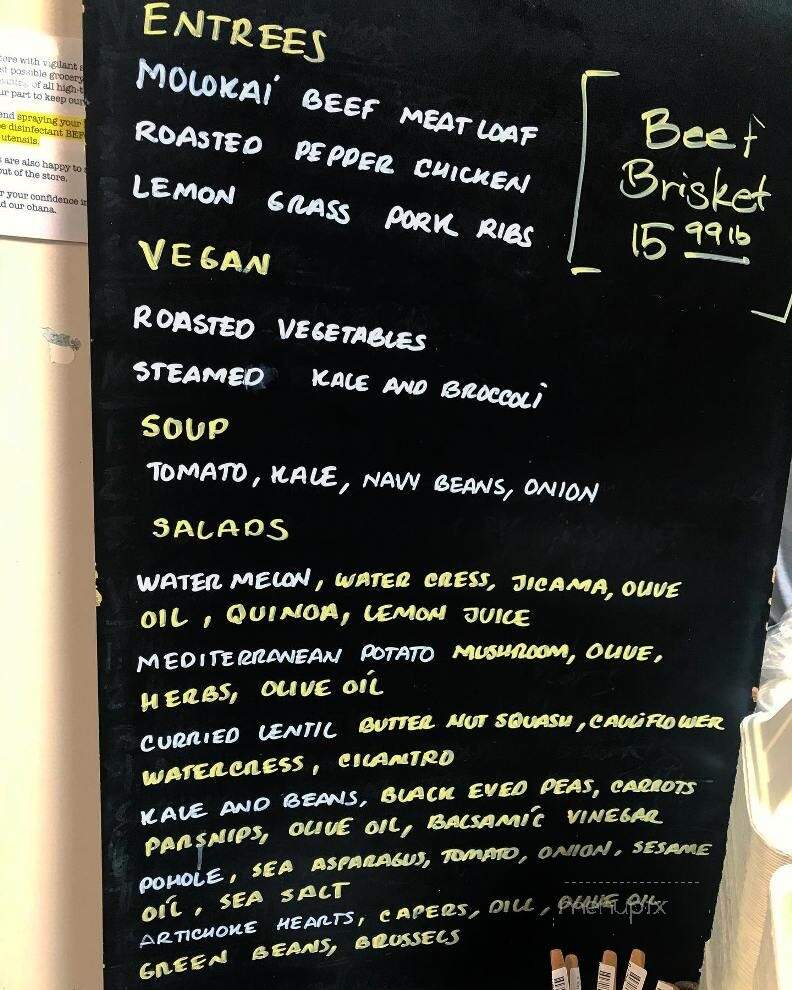 ore with vigilant
st possible grocery
of all high-t
ur part to keep our
end spraying your
e disinfectant BEF
utensils.
are also happy to
out of the store.
r your confidence in
d our ohana.
ENTREES
MOLOKAI BEEF MEAT LOAF
ROASTED PEPPER CHICKEN
LEMON GRASS PORK RIBS
Beef
Brisket
15 99 lb
VEGAN
ROASTED VEGETABLES
STEAMED KALE AND BROCCOLI
SOUP
TOMATO, KALE, NAVY BEANS, ONION
SALADS
WATER MELON, WATER CRESS, JICAMA, OLIVE
OIL, QUINOA, LEMON JUICE
MEDITERRANEAN POTATO MUSHROOM, OLIVE,
HERBS, OLIVE OIL
CURRIED LENTIL BUTTER NUT SQUASH, CAULIFLOWER
WATERCRESS, CILANTRO
KALE AND BEANS, BLACK EYED PEAS, CARROTS
PARSNIPS, OLIVE OIL, BALSAMIC VINEGAR
POHOLE, SEA ASPARAGUS, TOMATO, ONION, SESAME
OIL, SEA SALT
ARTICHOKE HEARTS, CAPERS, DILL, OLIVE OIL
GREEN BEANS, BRUSSELS
menupix